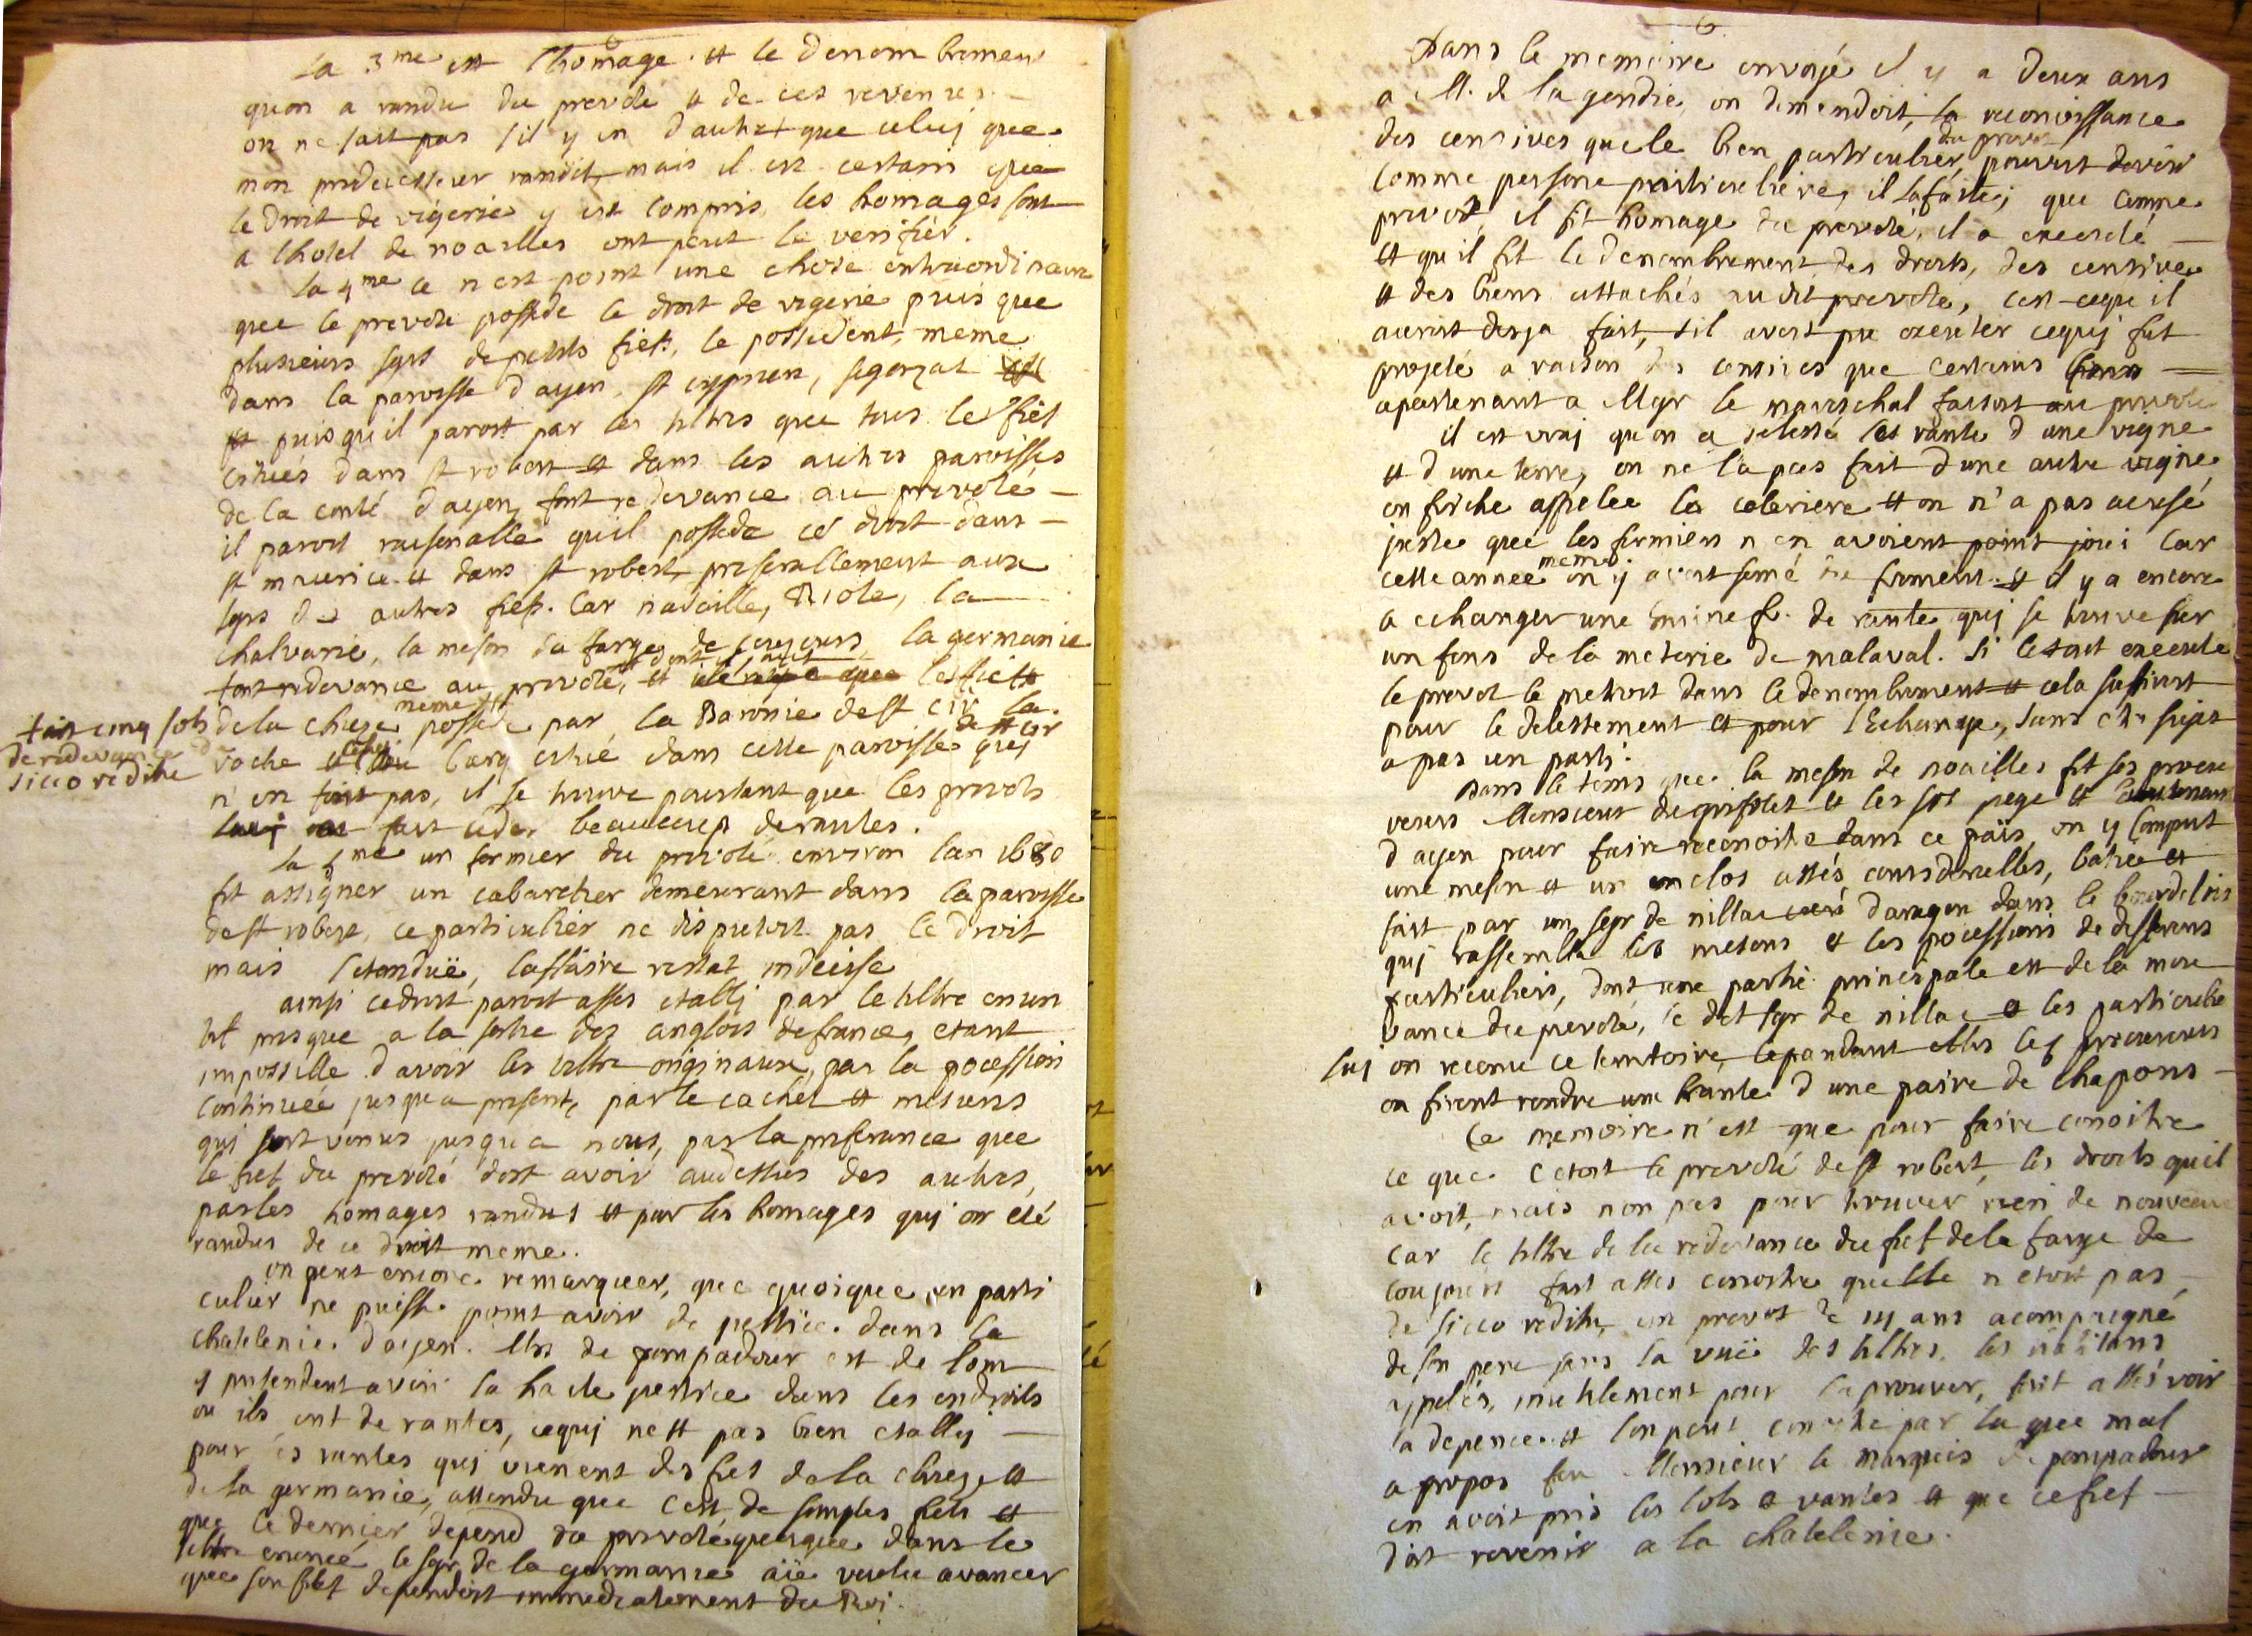 la 3me est l'homage et le denombremen
quon a randu du prevolé et de ces revenues
on ne sait pas s'il y en d'autres que celuj que
mon predecesseur randit, mais il est certain que
le droit de vigerie y est compris, les homages sont
a l'hotel de noailles ont peut le verifier.
la 4me ce n'est point une chose extraordinaire
que le prevolé possede le droit de vigerie puis que
plusieurs sgrs de petits fiefs, le possedent, meme
dans la paroisse d'ayen, st cyprien, segonzat
et puis quil paroit par les titres que tous les fief
citués dans st robert et dans les autres paroisses
de la conté d'ayen, font redevance au prevolé
il paroit raisonalle quil possede ce droit dans
st maurice et dans st robert preferallement aux
sgrs des autres fiefs. Car navaille, Riole, la
chalvarie, la meson la farge de coujours, la germanie
font redevance au prevolé, et les fiefs
de la chieze meme possedé par la Baronie de st cir la
fait cinq sols
de redevance
sicco reditu
roche et celuj barg citué dans cette paroisse de st cir quj
n'en fait pas, il se trouve pourtant que les prevots
luy ont fait ceder beaucoup de rantes.
la 5me un fermier du prevolé environ l'an 1680
fit assigner un cabaretier demeurant dans la paroisse
de st robert, ce particulier ne disputoit pas le droit
mais l'etanduë, laffaire restat indecise
ainsi ce droit paroit asses etablj par le titre enun
tif presque a la sortie des anglois de france, etant
impossille d'avoir les titre originaux, par la pocession
continuée jusqu'a present, par le cachet et mesures
quj sont venus jusqu'a nous, par la preferance que
le fief du prevolé doit avoir audessus des autres,
par les homages randus et par les homages quj on eté
randus de ce droit meme.
on peut encore remarquer, que quoique un parti
culier ne puisse point avoir de justice dans la
chatelenie d'ayen. Mrs de pompadour et de lom
y pretendent avoir la haute justice dans les endroits
ou ils ont de rantes, cequj nest pas bien etablj
pour les rantes quj vienent des fiefs de la chieze et
de la germanie, attendu que cest de simples fiefs et
que le dernier depend du prevolé quoique dans le
titre enoncé le sgr de la germanie aïe voulu avancer
que son fief dependoit immediatement du Roi.
6
Dans le memoire envoyé il y a deux ans
a M. de lagendie, on demendoit, la reconoissance
des censives que le bien particulier du prevot pouvoit devoir
comme persone particuliere, il la faite, que comme
prevot, il fit homage du prevolé, il a executé
et qu'il fit le denombrement des droits, des censives
et des biens attachés au dit prevolé, cest ceque il
auroit desja fait, s'il avoit pu executer cequj fut
projeté a raison des censives que certains biens
apartenant a Mgr le mareschal faisoit au prevolé
il est vraj quon a delessé les rante d'une vigne
et d'une terre, on ne l'a pas fait d'une autre vigne
en friche appelée la celeriere et on n'a pas acusé
juste que les fermiers n'en avoient point joui car
cette année meme on y avoit semé de froment. et il y a encore
a echanger une emine fr. de rante quj se trouve sur
un fons de la meterie de malaval. Si c'etoit executé
le prevot le metroit dans le denombrement et cela sufiroit
pour le delessement et pour l'Echange, sans etre sujet
a pas un parti.
Dans le tems que la meson de noailles fit ses procu
reurs Monsieur degrifolet et les srs pege et
d'ayen pour faire reconoitre dans ce païs, on y comprit
une meson et un enclos assés considerailles, batie et
fait par un sgr de nillac d'aragon dans le bourdelois
quj rassembla les mesons et les pocessions de diferens
particuliers, dont une partie principale est de la mou
vance du prevolé, le dit sgr de nillac et les particulie
luj on reconu ce territoire, cepandant Mrs les procureurs
en firent rendre une rante d'une paire de chapons
Ce memoire n'est que pour faire conoitre
ce que c'etoit le prevolé de st robert, les droits quil
avoit, mais non pas pour trouver rien de nouveau
car le titre de la redevance du fief de la farge de
coujours fait asses conoitre quelle n'etoit pas
de sicco reditu, un prevot de ans acompaigné
de son pere sans la vuë des titres, les abitans
appelés, inutilement pour la prouver, fait assés voir
la depence et lon peut conoitre par la que mal
a propos feu Monsieur le marquis de pompadour
en avoit pris les lots et vantes et que ce fief
doit revenir a la chatelenie.